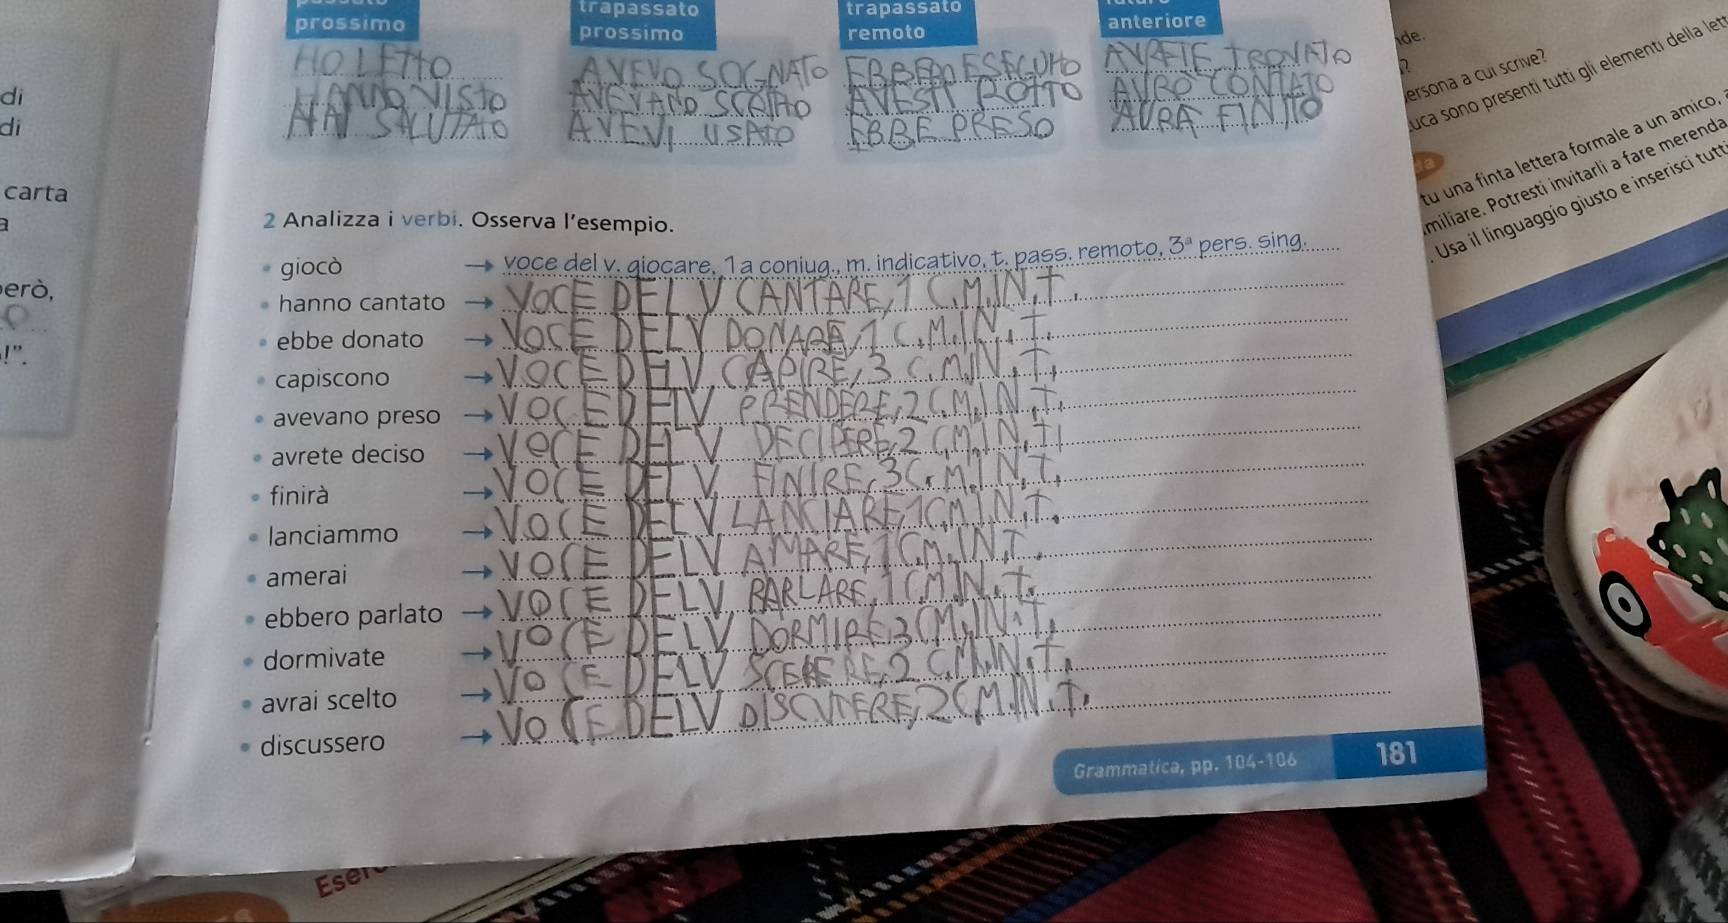 prossimo
trapassato
prossimo
trapassato
remoto
anteriore
HO LETTO
HANNO VISTO
HAI SALUTATO
AVEVO SOGNATO
AVEVANO SCELTO
AVEVI USATO
EBBERO ESEGUITO
AVESTI ROTTO
EBBE PRESO
AVRETE TROVATO
AVRO CONTATO
AVRA FINITO
di
di
carta
a
erò,
!”.
2 Analizza i verbi. Osserva l’esempio.
giocò → voce del v. giocare, 1a coniug., m. indicativo, t. pass. remoto, 3ª pers. sing.
hanno cantato → VOCE DEL V CANTARE, 1 C.M.IN.T.
ebbe donato → VOCE DEL V DONARE, 1 C.M.IN.T.
capiscono → VOCE DEL V. CAPIRE, 3 C.M.IN.T.
avevano preso → VOCE DEL V PRENDERE, 2 C.M.IN.T.
avrete deciso → VOCE DEL V DECIDERE, 2 C.M.IN.T.
finirà → VOCE DEL V. FINIRE, 3 C.M.IN.T.
lanciammo → VOCE DEL V LANCIARE, 1 C.M.IN.T.
amerai → VOCE DEL V AMARE, 1 C.M.IN.T.
ebbero parlato → VOCE DEL V PARLARE, 1 C.M.IN.T.
dormivate → VOCE DEL V DORMIRE, 3 C.M.IN.T.
avrai scelto → VOCE DEL V 2 C.M.IN.T.
discussero → VOCE DEL V 2 C.M.IN.T.
Grammatica, pp. 104-106
181
de.
?
ersona a cui scrive?
uca sono presenti tutti gli elementi della lett
tu una finta lettera formale a un amico,
miliare. Potresti invitarli a fare merenda
. Usa il linguaggio giusto e inserisci tutti
Eser